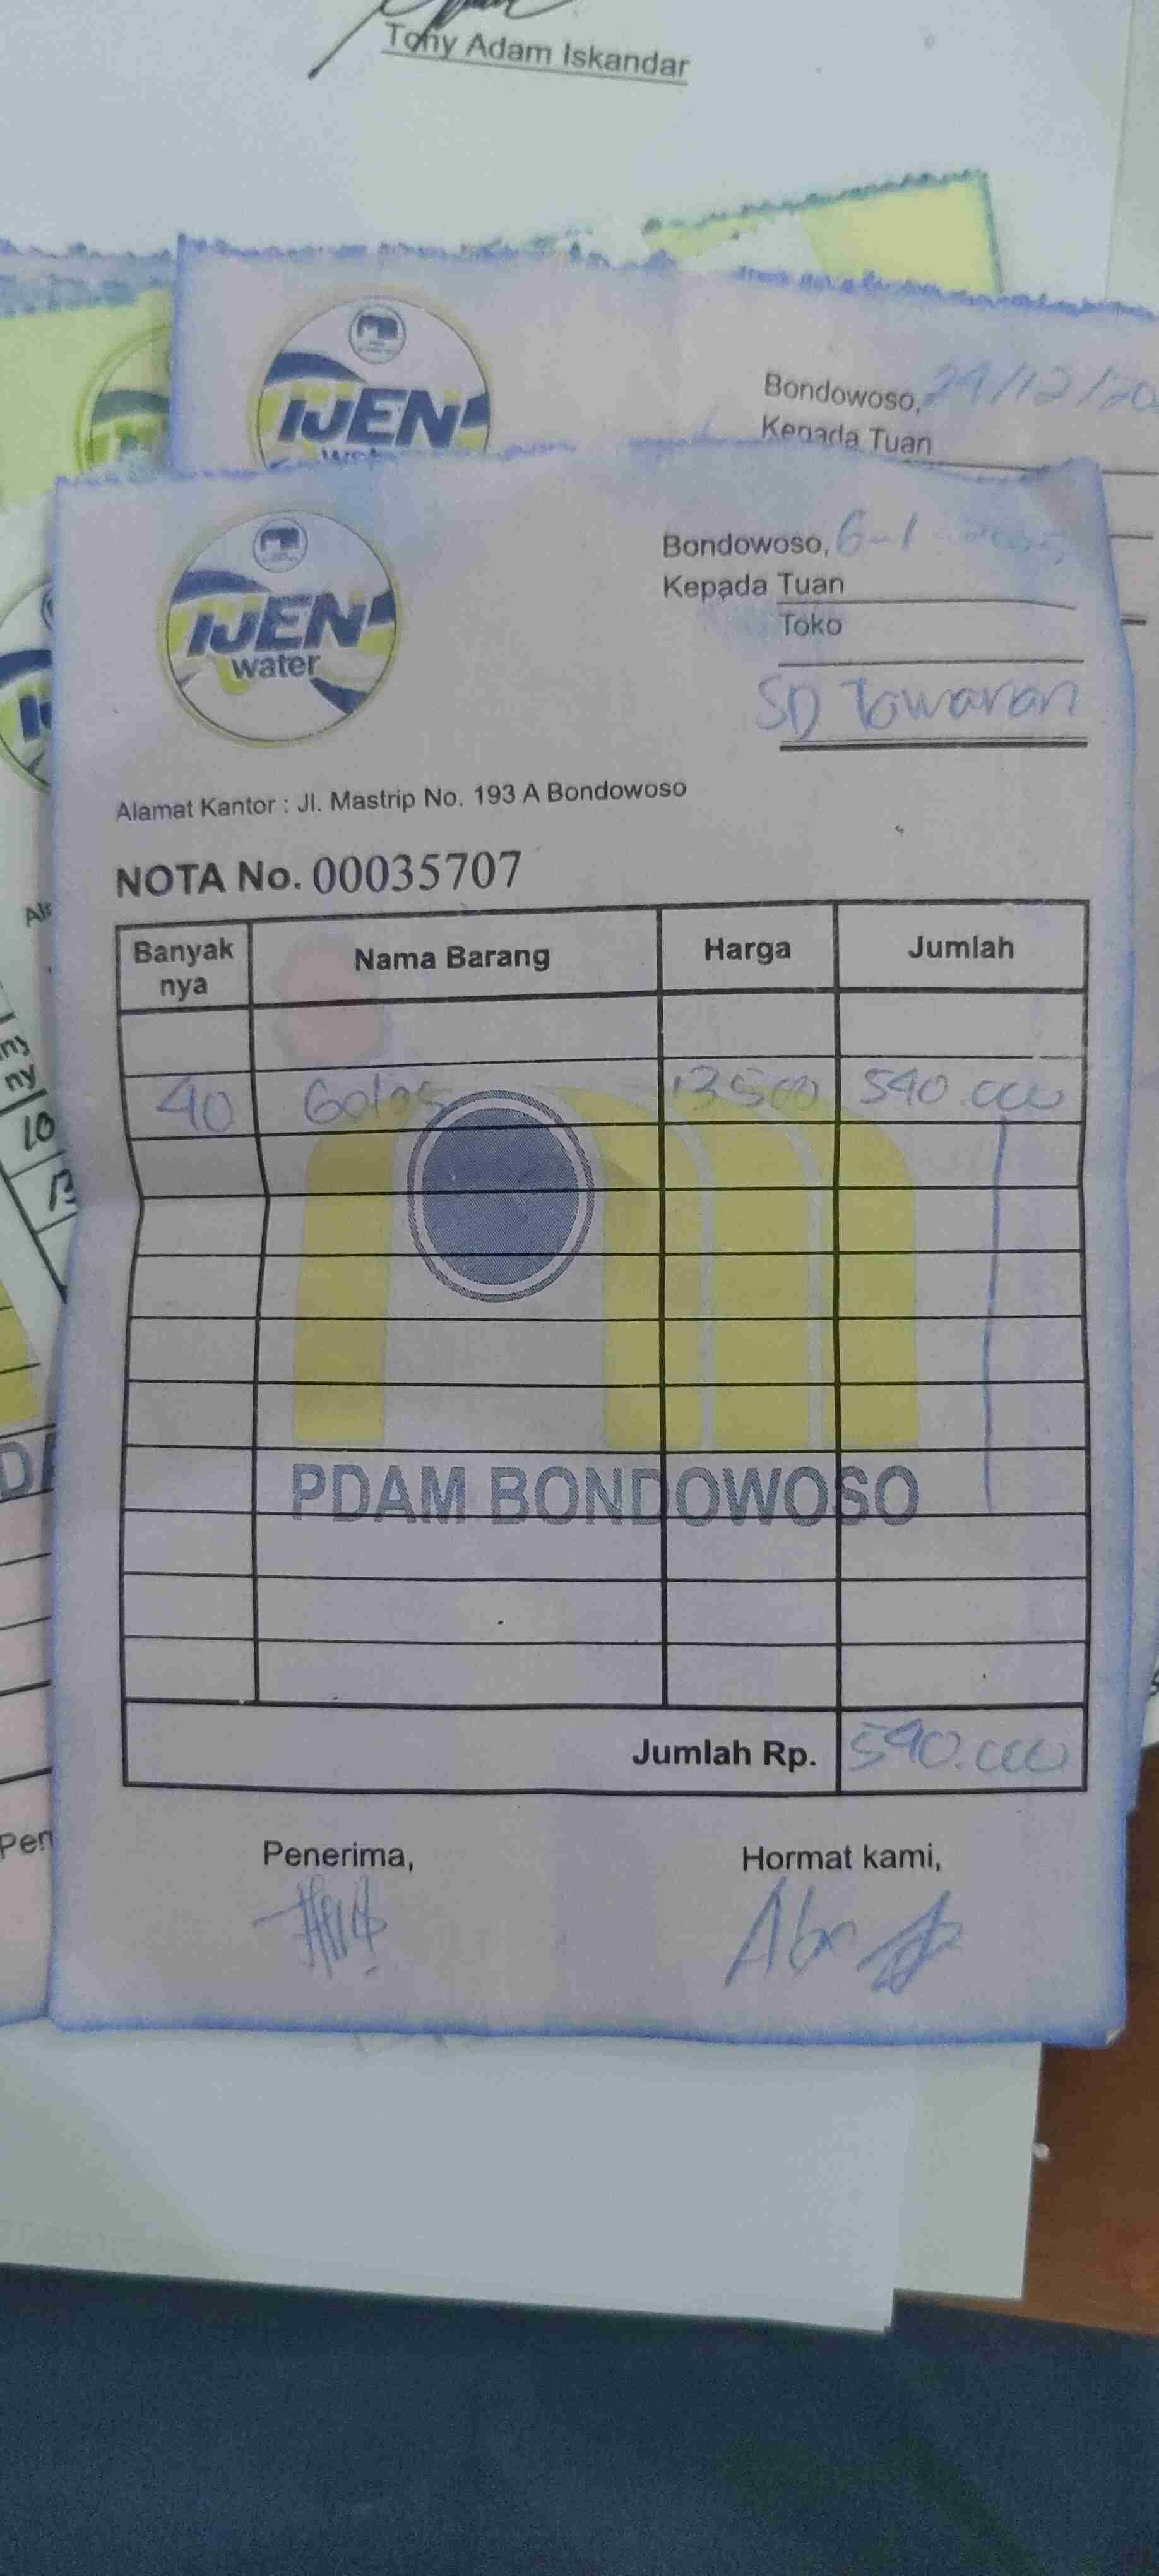 Tony Adam Iskandar
IJEN
Bondowoso, 24/12/20
Kepada Tuan
IJEN
water
Bondowoso, 6-1-
Kepada Tuan
Toko
SD Tawaran
Alamat Kantor : Jl. Mastrip No. 193 A Bondowoso
NOTA No. 00035707
Banyak nya Nama Barang Harga Jumlah
40 Galos 13500 540.000
PDAM BONDOWOSO
Jumlah Rp. 540.000
Penerima, Hormat kami,